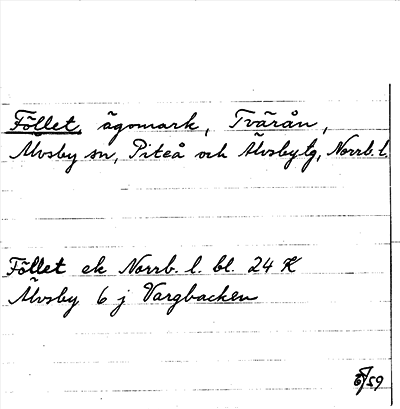 Föllet, ägomark, Tvärån,
Älvsby sn, Piteå och Älvsby tg, Norrb. l.
Föllet ek Norrb. l. bl. 24 K
Älvsby 6 j Vargbacken